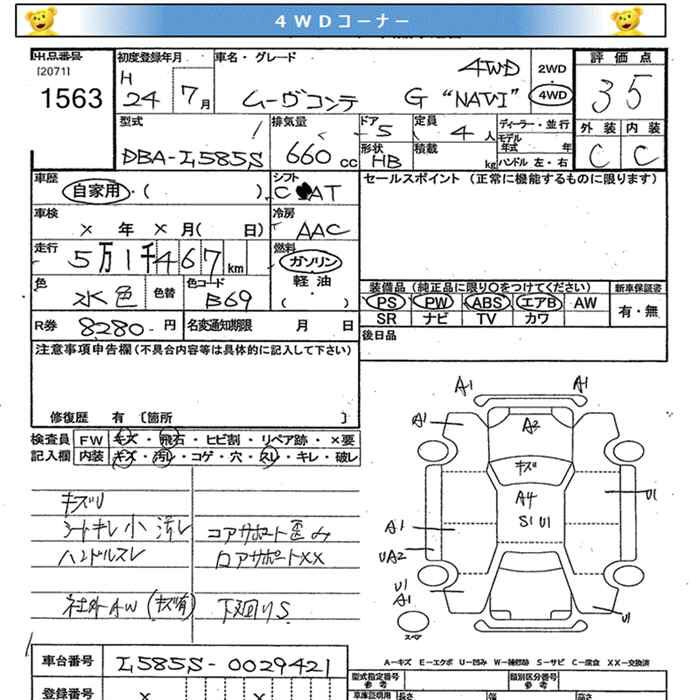 4WDコーナー
出品番号
[2071]
1563
初度登録年月
H
24 7月
車名・グレード
ムーヴコンテ G "NAVI" 4WD
2WD
4WD
評価点
35
外装 内装
C C
型式
DBA-L585S
排気量
660 cc
ドア
5
形状
HB
定員
4人
積載
kg
ディーラー・並行
モデル
年式 年
ハンドル 左・右
車歴
自家用・( )
シフト
C AT
セールスポイント (正常に機能するものに限ります)
車検
× 年 × 月( 日)
冷房
AAC
走行
5万1千467km
燃料
ガソリン
軽油
・( )
色
水色
色替
色コード
B69
装備品(純正品に限り○をつけてください)
PS PW ABS エアB AW
SR ナビ TV カワ
新車保証書
有・無
R券 8280-円
名変通知期限 月 日
後日品
注意事項申告欄(不具合内容等は具体的に記入して下さい)
修復歴 有 〔箇所 〕
検査員
記入欄
FW キズ・飛石・ヒビ割・リペア跡・×要
内装 キズ・汚れ・コゲ・穴・スレ・キレ・破レ
キズU
シートキレ小 汚レ コアサポート歪み
ハンドルスレ ロアサポートXX
社外AW(キズ有) 下廻りS
A1 A1
A1 A2
キズ
A4
S1 U1
U1
A1
UA2
U1
A1
U1
スペア
A-キズ E-エクボ U-凹み W-補修跡 S-サビ C-腐食 XX-交換済
車台番号 L585S-0029421
登録番号 × ×
型式指定番号
参考
類別区分番号
参考
車庫証明用 長さ 幅 高さ